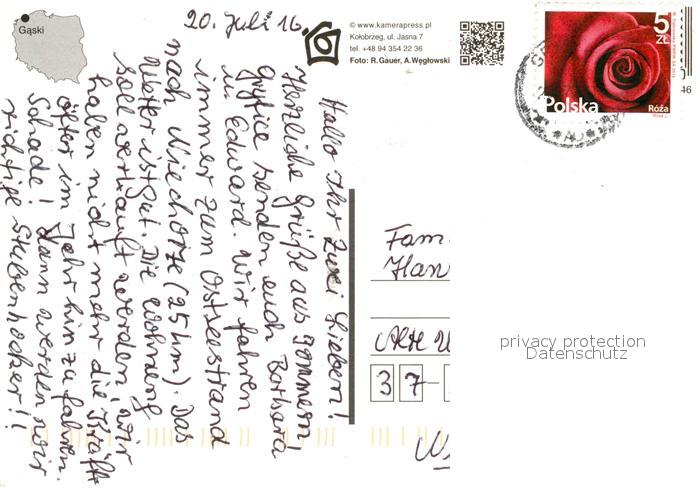 Gąski
20. Juli 16.
© www.kamerapress.pl
Kołobrzeg, ul. Jasna 7
tel. +48 94 354 22 36
Foto: R.Gauer, A.Węglowski
5
ZŁ
Polska
Róża
46
Hallo Ihr Zwei Lieben!
Herzliche Grüße aus Pommern!
Gryfice senden euch Barbara
u. Edward. Wir fahren
immer zum Ostseestrand
nach Niechorze (25 km). Das
Wetter ist gut. Die Wohnung
soll verkauft werden, wir
haben nicht mehr die Kraft
öfter im Jahr hin zu fahren.
Schade! Dann werden wir
richtige Stubenhocker!!
Fam.
Han
Alte
37-
privacy protection
Datenschutz